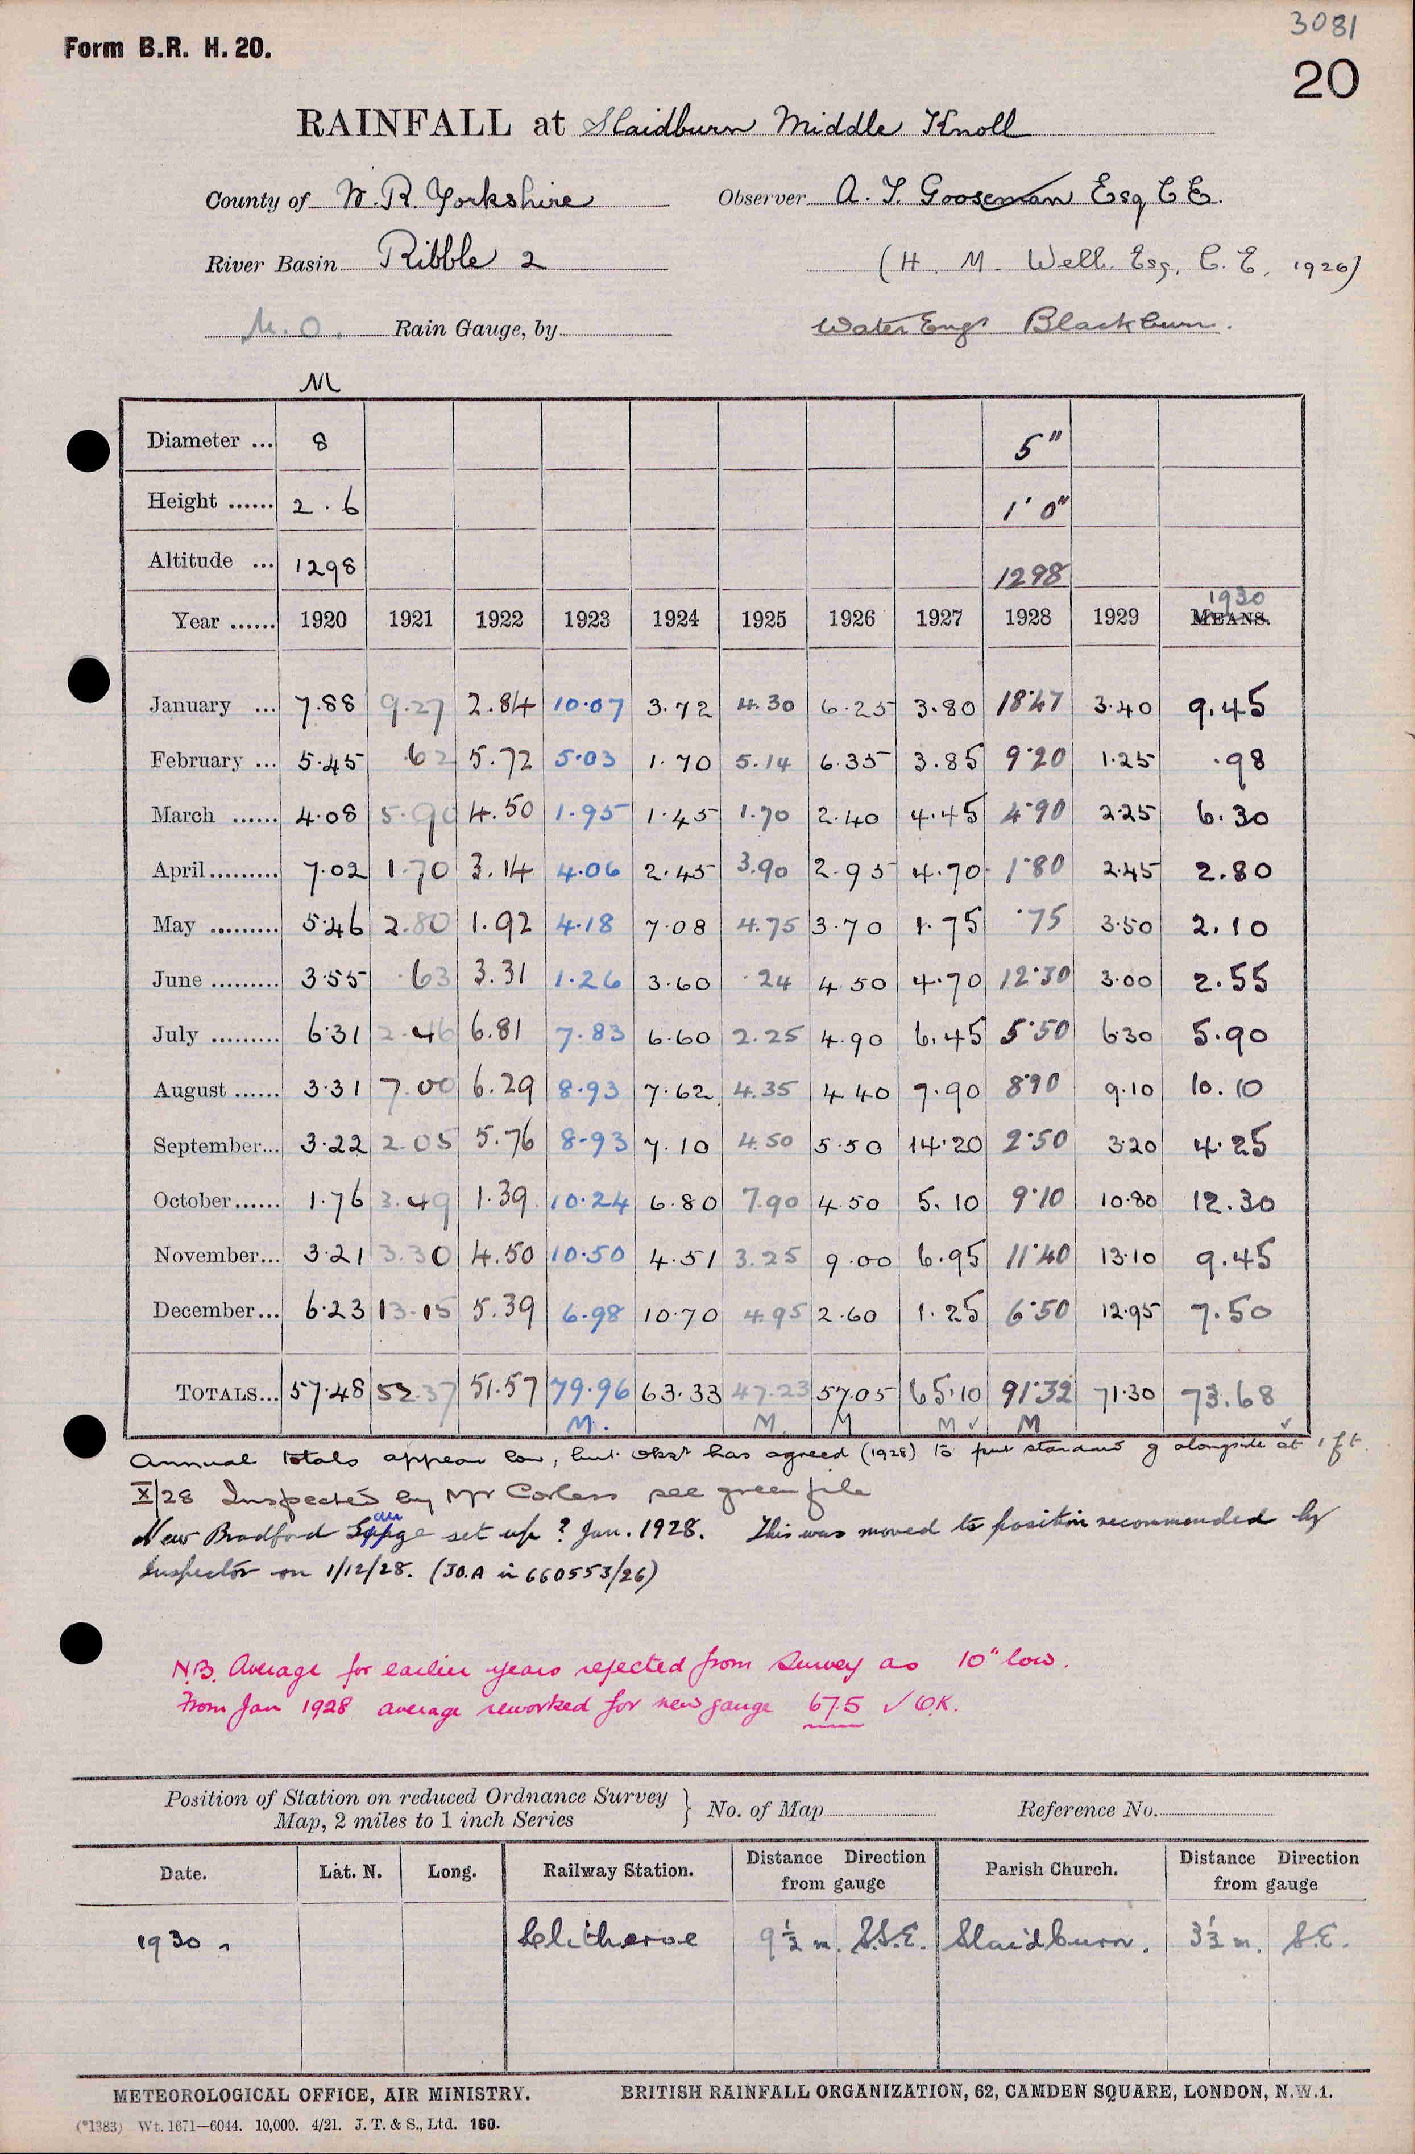 3081
Form B.R. H. 20.
20
RAINFALL at Slaidburn Middle Knoll
County of W. R. Yorkshire Observer A. T. Gooseman Esq C E.
River Basin Ribble 2 (H. M. Well. Esq. C. E. 1926)
M.O. Rain Gauge, by Water Engr Blackburn.
M
Diameter ... 8 5"
Height ...... 2 . 6 1' 0"
Altitude ... 1298 1298
1930
Year ...... 1920 1921 1922 1923 1924 1925 1926 1927 1928 1929 MEANS.
January ... 7.88 9.27 2.84 10.07 3.72 4.30 6.25 3.80 18.47 3.40 9.45
February ... 5.45 .62 5.72 5.03 1.70 5.14 6.35 3.85 9.20 1.25 .98
March ...... 4.08 5.90 4.50 1.95 1.45 1.70 2.40 4.45 4.90 2.25 6.30
April......... 7.02 1.70 3.14 4.06 2.45 3.90 2.95 4.70 1.80 2.45 2.80
May ......... 5.46 2.80 1.92 4.18 7.08 4.75 3.70 1.75 .75 3.50 2.10
June ......... 3.55 .63 3.31 1.26 3.60 .24 4.50 4.70 12.30 3.00 2.55
July ......... 6.31 2.46 6.81 7.83 6.60 2.25 4.90 6.45 5.50 6.30 5.90
August ...... 3.31 7.00 6.29 8.93 7.62 4.35 4.40 7.90 8.90 9.10 10.10
September... 3.22 2.05 5.76 8.93 7.10 4.50 5.50 14.20 2.50 3.20 4.25
October...... 1.76 3.49 1.39 10.24 6.80 7.90 4.50 5.10 9.10 10.80 12.30
November... 3.21 3.30 4.50 10.50 4.51 3.25 9.00 6.95 11.40 13.10 9.45
December... 6.23 13.15 5.39 6.98 10.70 4.95 2.60 1.25 6.50 12.95 7.50
TOTALS... 57.48 52.37 51.57 79.96 63.33 47.23 57.05 65.10 91.32 71.30 73.68
M. M. M M ✓ M ✓
Annual totals appear low, but obsr has agreed (1928) to put standard g alongside at 1 ft.
X/28 Inspected by Mr Corless see green file
New Bradford Gauge set up ? Jan. 1928. This was moved to position recommended by
Inspector on 1/12/28. (30.A in 660553/26)
N.B. Average for earlier years rejected from survey as 10" low.
From Jan 1928 average reworked for new gauge 67.5 ✓ O.K.
Position of Station on reduced Ordnance Survey
Map, 2 miles to 1 inch Series } No. of Map Reference No.
Date. Lat. N. Long. Railway Station. Distance Direction from gauge Parish Church. Distance Direction from gauge
1930 Clitheroe 9 1/2 m. S.S.E. Slaidburn. 3 1/2 m. S.E.
METEOROLOGICAL OFFICE, AIR MINISTRY. BRITISH RAINFALL ORGANIZATION, 62, CAMDEN SQUARE, LONDON, N.W.1.
(*1383) Wt. 1671—6044. 10,000. 4/21. J. T. & S., Ltd. 160.